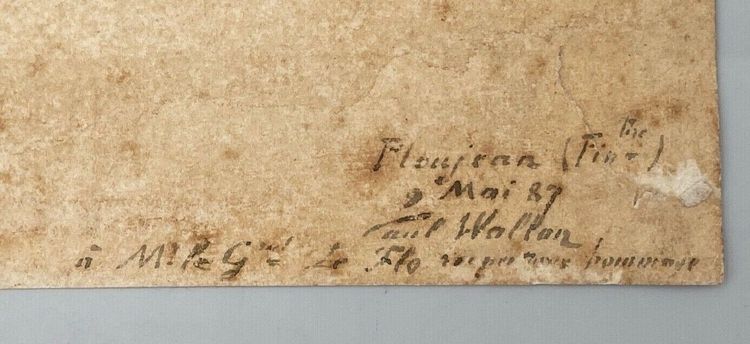 Ploujean (Fin^re)
9 Mai 87
Paul Wallon
à Mr le Gral Le Flo respectueux hommage